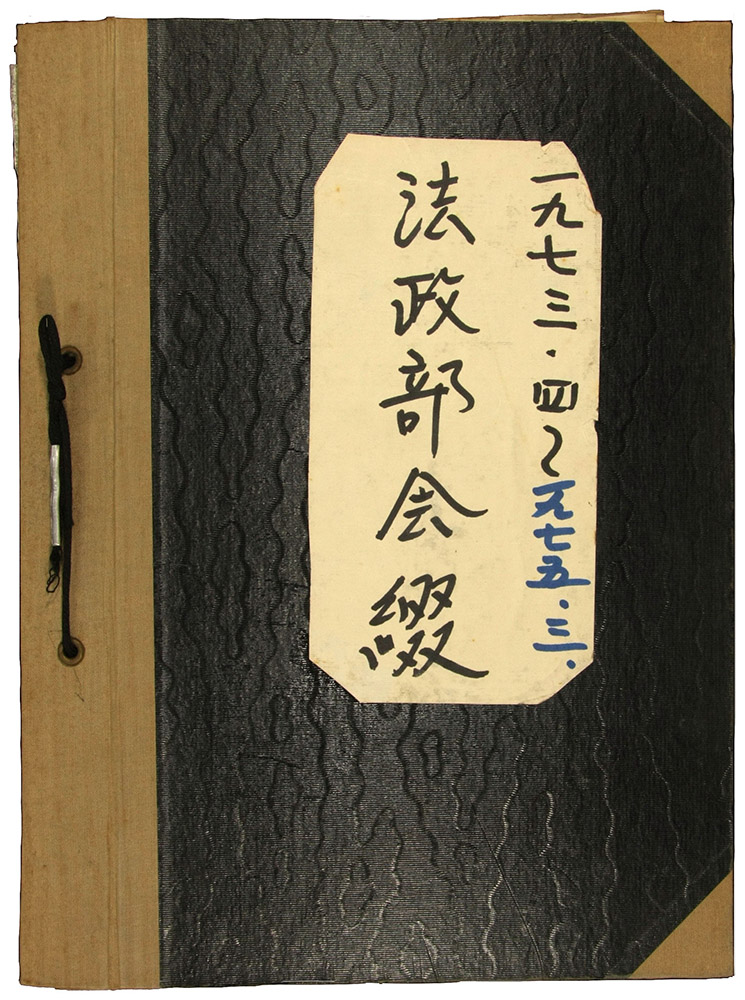 一九七三・四～一九七五・三、
法政部会綴